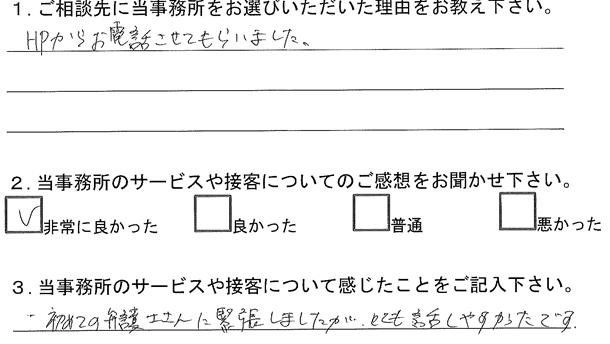 1. ご相談先に当事務所をお選びいただいた理由をお教え下さい。
HPからお電話させてもらいました。
2. 当事務所のサービスや接客についてのご感想をお聞かせ下さい。
V 非常に良かった 良かった 普通 悪かった
3. 当事務所のサービスや接客について感じたことをご記入下さい。
・初めての弁護士さんに緊張しましたが、とても話しやすかったです。